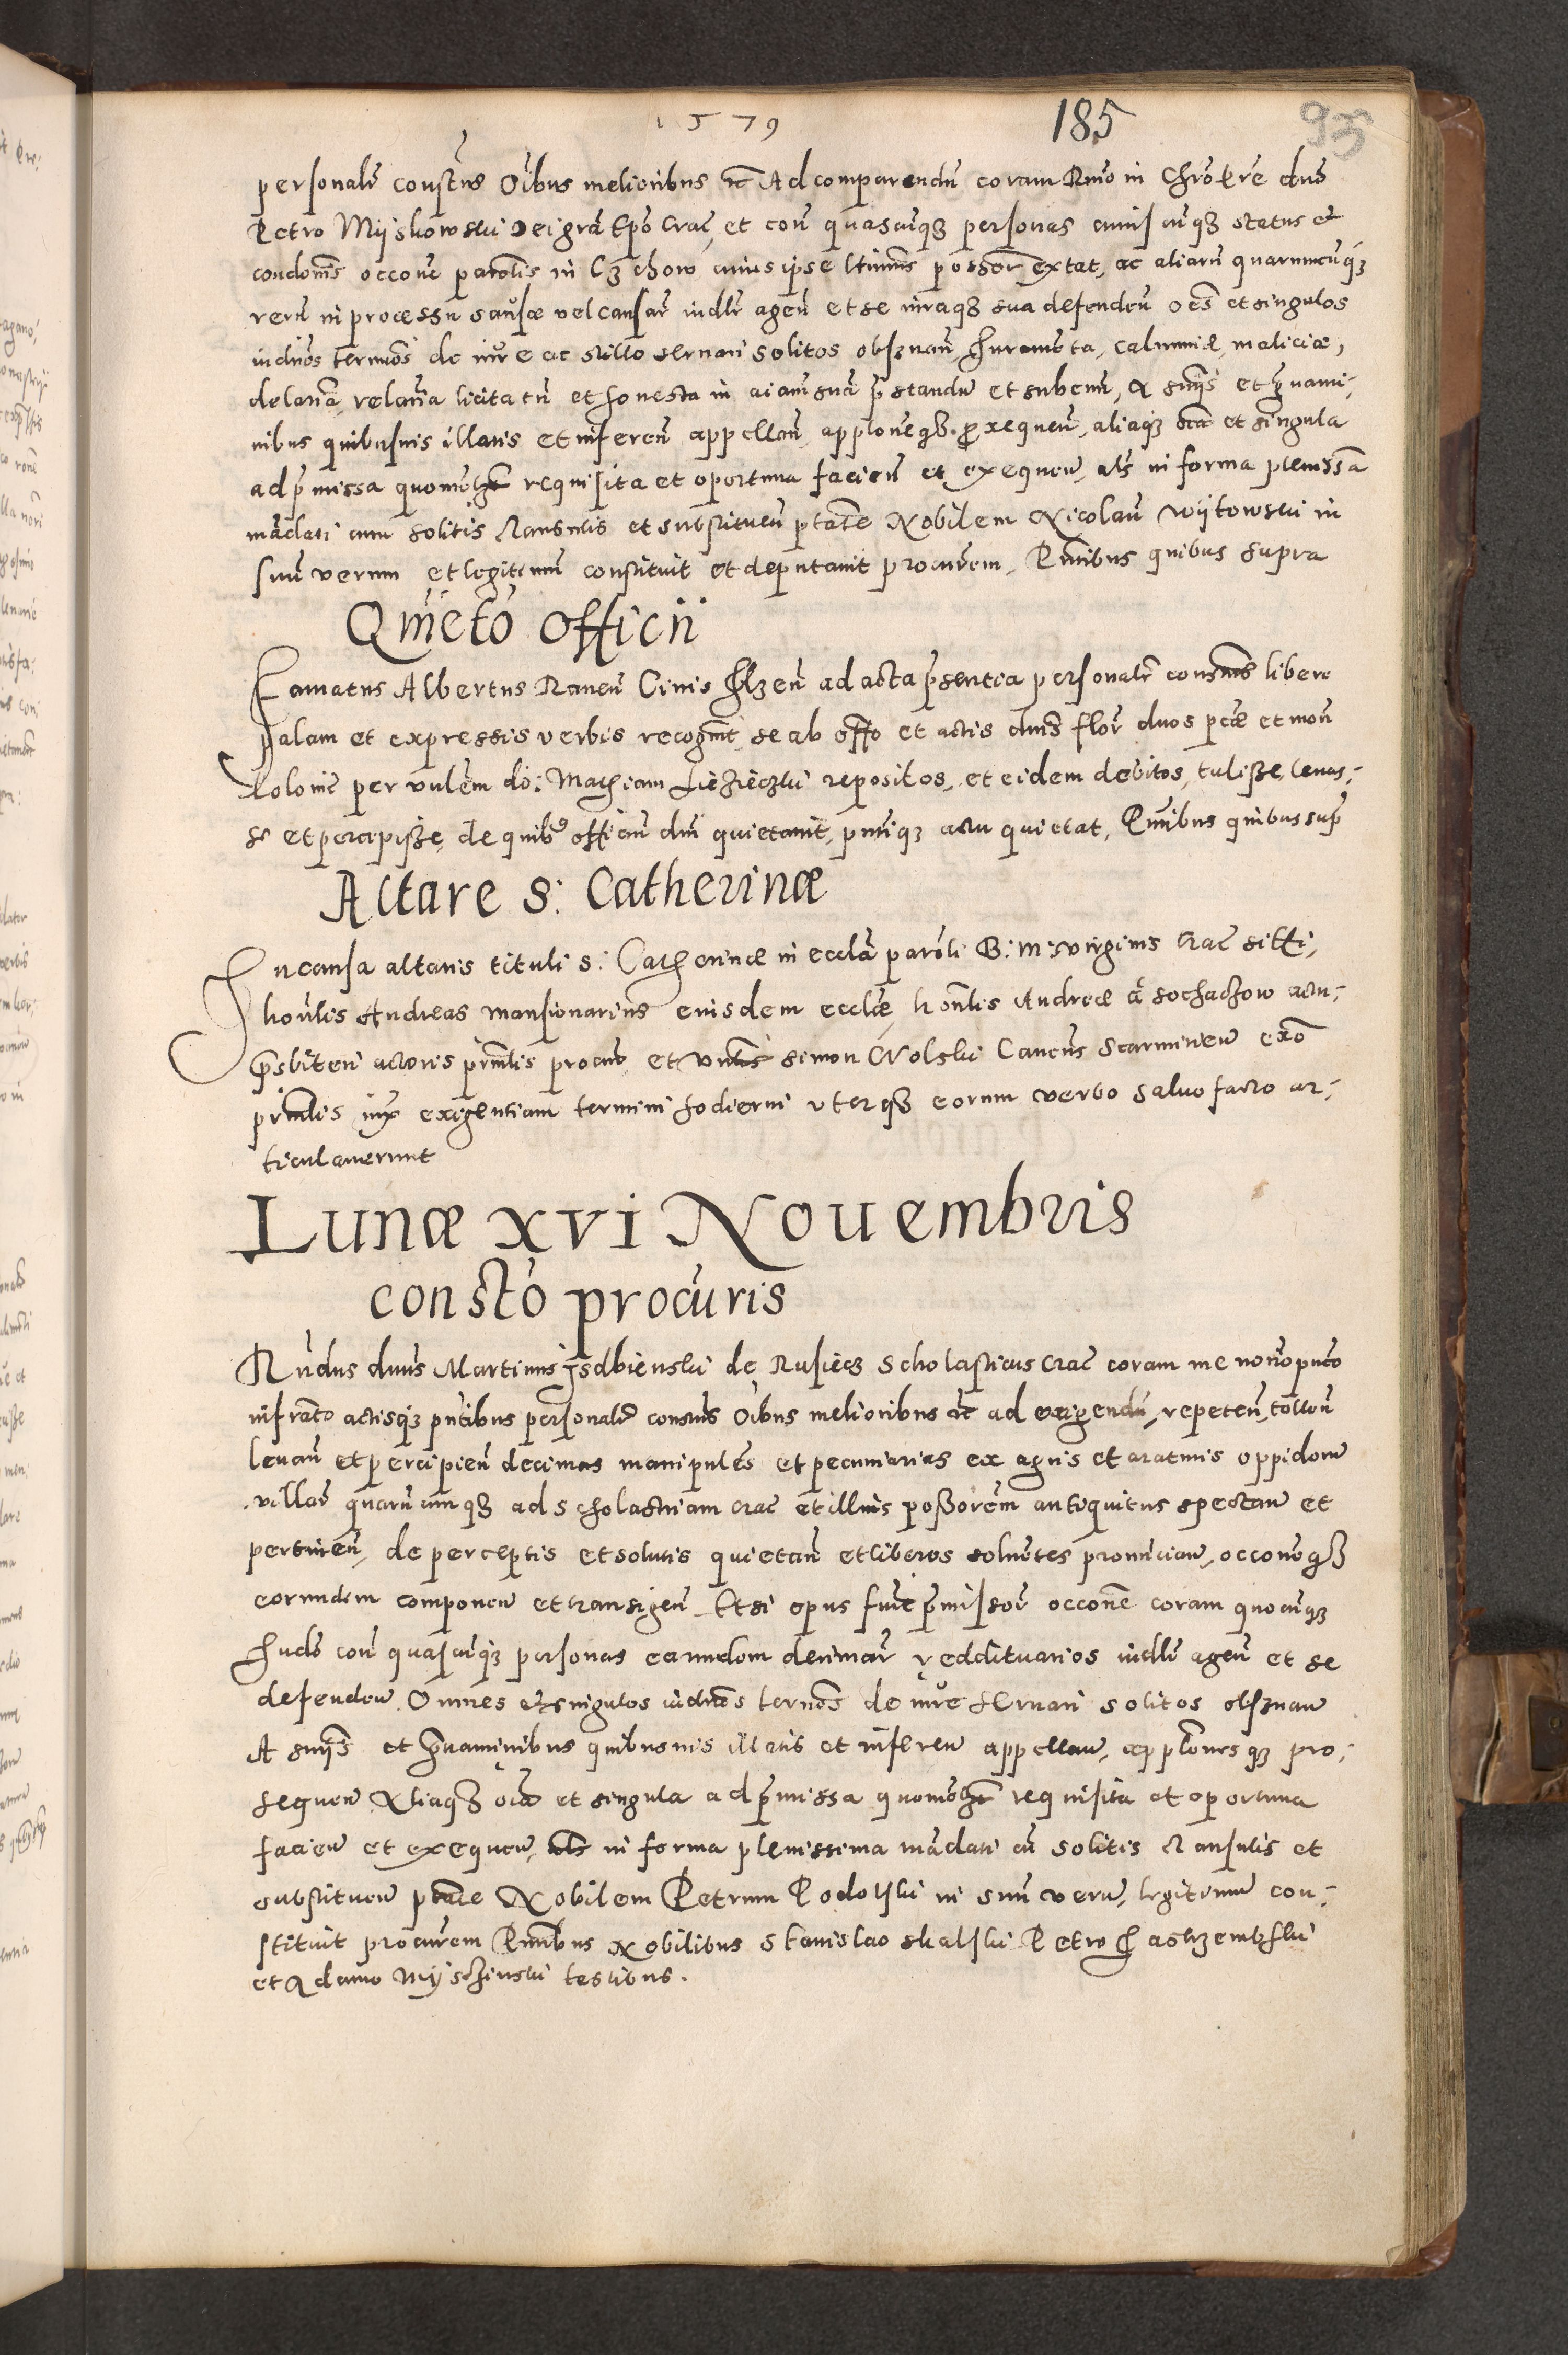 1579 185 95
personalr constius Oibus melioribus etc Ad comparendū coram Rmo in Chro Pre dno
Petro Mijskowski Dei gra Epo Crac, et con quascunq₃ personas cuiuscunq₃ status et
condonis occone parolis in Czchow cuius ipse ltimus possor extat, ac aliarū quarumcūq₃
rerū in processu causæ vel causar iudlr agen et se iuraq₃ sua defenden oes et singulos
iudrios terminos de iure ac stillo seruari solitos obseruan, Iuramēta, calumniæ, maliciæ,
delaria, relaria licita tn et honesta in aiam suā pstandū et subeun, A snijs et gruami-
nibus quibusuis illatis et inferen appellan, applonesq₃ proxequen, aliaq₃ oīa et singula
ad pmissa quomolt requisita et oportuna facien et exequen, als in forma plenissa
mādati cum solitis clausulis et substituen ptate Nobilem Nicolaū Wijtowski in
suū verum et legitimū constituit et deputauit procurem, Pntibus quibus supra
Quieto Officii
Famatus Albertus Ranen Ciuis Ilzen ad acta psentia personalr constius libere
palam et expressis verbis recognit se ab offo et actis dnis flor duos pecæ et mon
Poloniæ per vnlem do: Mathiam repositos, et eidem debitos, tulisse, leuas-
se et percepisse, de quib9 officiū dni quietauit, pntiq₃ actu quietat, Pntibus quibus supr
Altare S: Catherinæ
In causa altaris tituli S: Catherinæ in eccla paroli B: M: virginis Crac siti,
honlis Andreas mansionarius eiusdem eccliæ, honlis Andreæ à Sochachow actu-
Prsbiteri actoris prinlis procur, et vnlis Simon Wolski Cancus Scarmirien exo
prinlis iux exigentiam termini hodierni vterq₃ eorum verbo saluo facto ar-
ticulauerunt
Lunæ XVI Nouembris
consto procuris
Rndus dnus Martinus Jsdbienski de Rusiecz Scholasticus Crac coram me norio puco
infrato actisq₃ pntibus personalr constius Oibus melioribus etc ad exigendū, repeten, tollen
leuan et percipien decimas manipules et pecuniarias ex agris et araturis oppidorū
villar quarumcunq₃ ad Scholastriam Crac et illius possorem antiquitus spectan et
pertinen, de perceptis et solutis quietan et liberos soluētes pronuncian, occoneq₃
eorundem componen et transigen Et si opus fuit pmissor occone coram quocunq₃
Iudē con quascunq₃ personas earundem decimar reddituarios iudlr agen et se
defenden Omnes et singulos iudrios terminos de iure seruari solitos obseruan
A snijs et gruaminibus quibusuis illatis et inferen appellan, applonesq₃ pro-
sequen Aliaq₃ oīa et singula ad pmissa quomolt requisita et oportuna
facien et exequen, als in forma plenissima mādati cū solitis clausulis et
substituen ptate Nobilem Petrum Podolski in suū verū, legitimū con-
stituit procurem Pntibus Nobilibus Stanislao Skalski Petro
et Adamo Mijschinski testibus.